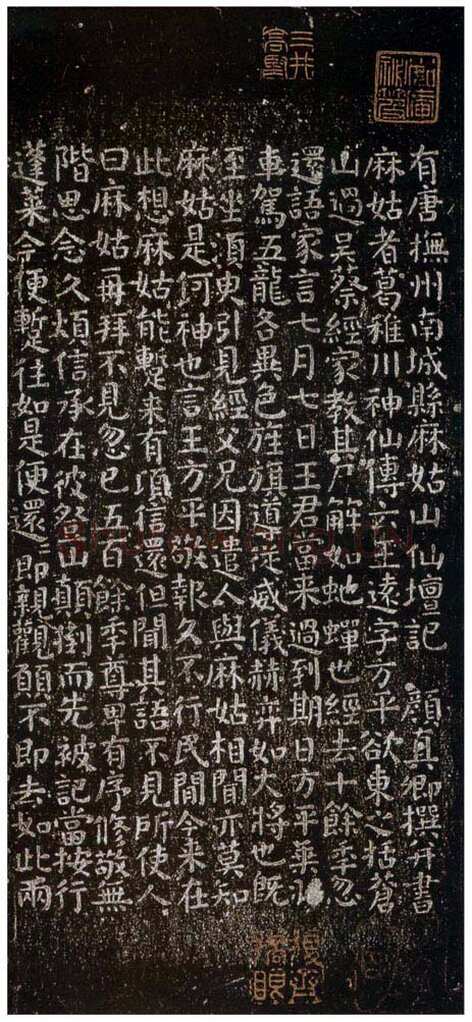 三井高堅
有唐撫州南城縣麻姑山仙壇記 顏真卿撰并書
麻姑者葛稚川神仙傳云王遠字方平欲東之括蒼
山過吳蔡經家教其尸解如虵蟬也經去十餘季忽
還語家言七月七日王君當来過到期日方平乗羽
車駕五龍各異色旌旗道從威儀赫弈如大將也既
至坐須臾引見經父兄因遣人與麻姑相聞亦莫知
麻姑是何神也言王方平敬報久不行民間今来在
此想麻姑能蹔来有頃信還但聞其語不見所使人
曰麻姑再拜不見忽已五百餘季尊卑有序修敬無
階思念久煩信承在彼登山顛倒而先被記當按行
蓬萊今便蹔往如是便還〻即親觀願不即去如此兩